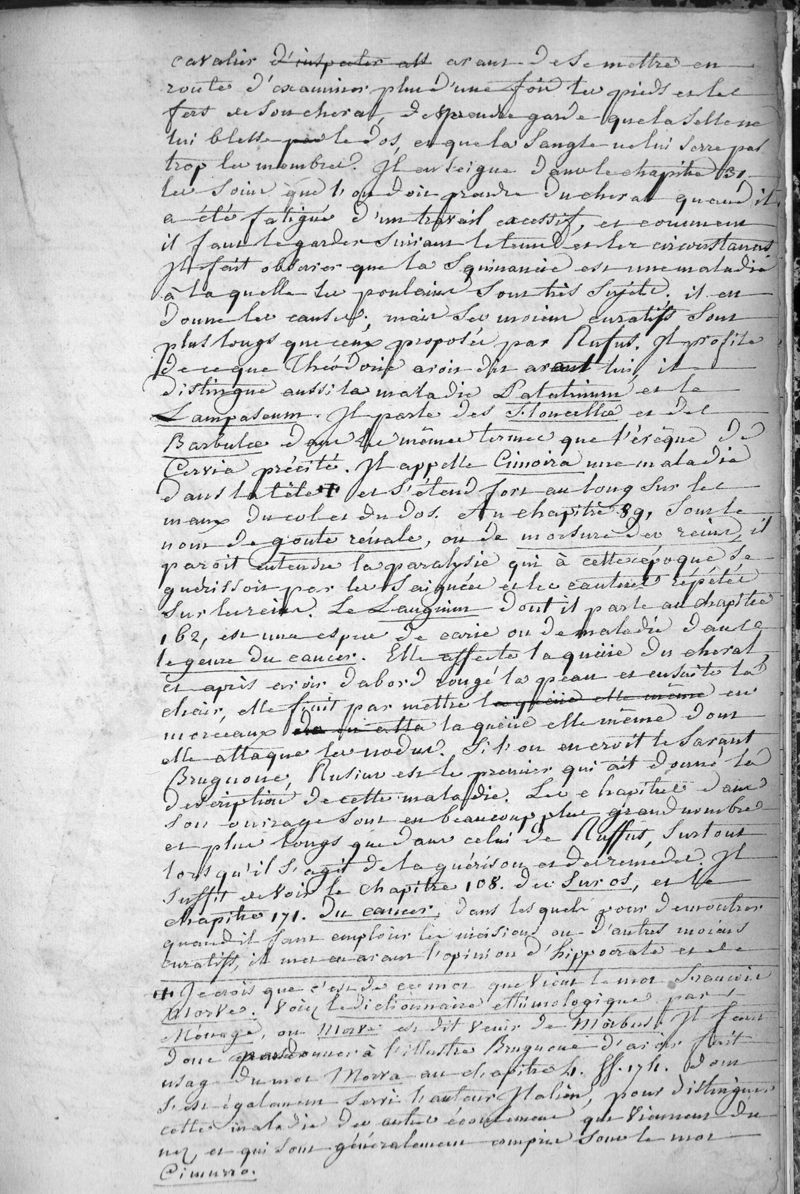 cavalier d'inspecter avant de se mettre en
route d'examiner plus d'une fois les pieds et les
fers de son cheval, de prendre garde que la selle ne
lui blesse pas le dos, et que la sangle ne lui serre pas
trop les membres. Il enseigne dans le chapitre 31,
les soins que l'on doit prendre du cheval quand il
a été fatigué d'un travail excessif, et comment
il faut le garder suivant le tems et les circonstances
Il fait observer que la Squinancie est une maladie
à laquelle les poulains sont très sujets. il en
donne les causes, mais ses moiens curatifs sont
plus longs que ceux proposés par Rufus. Il profite
de ce que Théodoric avoit dit avant lui, il
distingue aussi la maladie Palatinum et le
Lampascum. Il parle des Floncelle et des
Barbule dans les mêmes termes que l'évêque de
Cervia précité. Il appelle Cimoira une maladie
dans la tête ✝ et s'étend fort au long sur les
maux du col et du dos. Au chapitre 89, sous le
nom de goute rénale, ou de morsure des reins, il
paroit entendre la paralysie qui à cette époque se
guérissoit par les saignées et les cautères répétés
sur les reins. Le Languinu dont il parle au chapitre
162, est une espece de carie ou de maladie dans le
le genre du cancer. Elle affecte la queüe du cheval,
et après avoir d'abord rongé la peau et ensuite la
chair, elle finit par mettre la queüe elle même en
morceaux la queüe elle même dont
elle attaque les nodus. Si l'on en croit le savant
Brugnone, Rusius est le premier qui ait donné la
description de cette maladie. Les chapitres dans
son ouvrage sont en beaucoup plus grand nombre
et plus longs que dans celui de Ruffus, surtout
lorsqu'il s'agit de la guérison et des remedes. Il
suffit de voir le chapitre 108. du suros, et le
chapitre 171. du cancer, dans lesquels pour démontrer
quand il faut emploier les incisions ou d'autres moiens
curatifs, il met en avant l'opinion d'hippocrate et de
✝ Je crois que c'est de ce mot que vient le mot francois
Morve. Voiez le dictionnaire ethimologique par
Ménage, ou Morve est dit venir de Morbus. Il faut
donc pardonner à l'illustre Brugnone d'avoir fait
usag du mot Morva au chapitre 4. ff. 174. dont
s'est également servi l'auteur Italien, pour distinguer
cette maladie des autres écoulemens qui viennent du
nez, et qui sont généralement compris sous le mot
Cimurro.